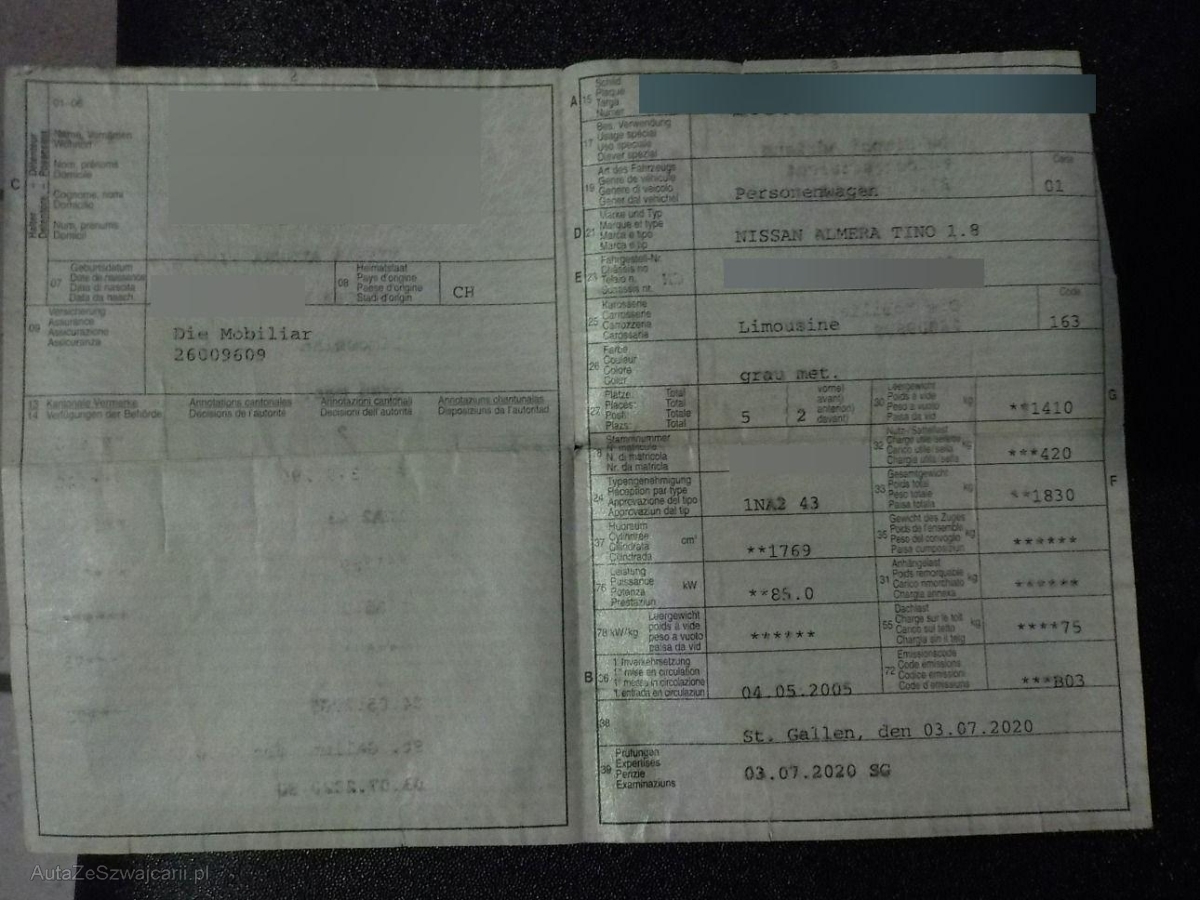 2
01-06
Name, Vornamen
Wohnort
Nom, prénoms
Domicile
Cognome, nomi
Domicilio
Num, prenums
Domicil
C
07
Geburtsdatum
Date de naissance
Data di nascita
Data da nasch.
08
Heimatstaat
Pays d'origine
Paese d'origine
Stadi d'origin
CH
09
Versicherung
Assurance
Assicurazione
Assicuranza
Die Mobiliar
26009609
13
14
Kantonale Vermerke
Verfügungen der Behörde
Annotations cantonales
Décisions de l'autorité
Annotazioni cantonali
Decisioni dell'autorità
Annotaziuns chantunalas
Disposiziuns da l'autoritad
3
A
15
Schild
Plaque
Targa
Numer
17
Bes. Verwendung
Usage spécial
Uso speciale
Diever spezial
19
Art des Fahrzeugs
Genre de véhicule
Genere di veicolo
Gener dal vehichel
Personenwagen
Code
01
D
21
Marke und Typ
Marque et type
Marca e tipo
Marca e tip
NISSAN ALMERA TINO 1.8
E
23
Fahrgestell-Nr.
Châssis no
Telaio n.
25
Karosserie
Carrosserie
Carrozzeria
Carossaria
Limousine
Code
163
26
Farbe
Couleur
Colore
Colur
grau met.
27
Plätze: Total
Places: Total
Posti: Totale
Plazs: Total
5
2
vorne)
avant)
anteriori)
davant)
30
Leergewicht
Poids à vide
Peso a vuoto
Paisa da vid
kg
**1410
G
Stammnummer
N. di matricola
Nr. da matricla
32
kg
***420
24
Typengenehmigung
Réception par type
Approvazione del tipo
Approvaziun dal tip
1NA2 43
33
Gesamtgewicht
Poids total
Peso totale
Paisa totala
kg
**1830
F
37
Hubraum
Cylindrée
Cilindrata
Cilindrada
cm³
**1769
35
Gewicht des Zuges
Poids de l'ensemble
Peso del convoglio
Paisa cumposiziun
kg
******
76
Leistung
Puissance
Potenza
Prestaziun
kW
**85.0
31
Anhängelast
Poids remorquable
Carico rimorchiato
Chargia annexa
kg
******
78 kW/kg
Leergewicht
poids à vide
peso a vuoto
paisa da vid
******
55
Dachlast
Charge sur le toit
Carico sul tetto
Chargia sin il tetg
kg
****75
B
36
1. Inverkehrsetzung
1re mise en circulation
1. messa in circolazione
1. entrada en circulaziun
04.05.2005
72
Emissionscode
Code émissions
Codice emissioni
Code d'emissiuns
***B03
38
St. Gallen, den 03.07.2020
39
Prüfungen
Expertises
Perizie
Examinaziuns
03.07.2020 SG
AutaZeSzwajcarii.pl